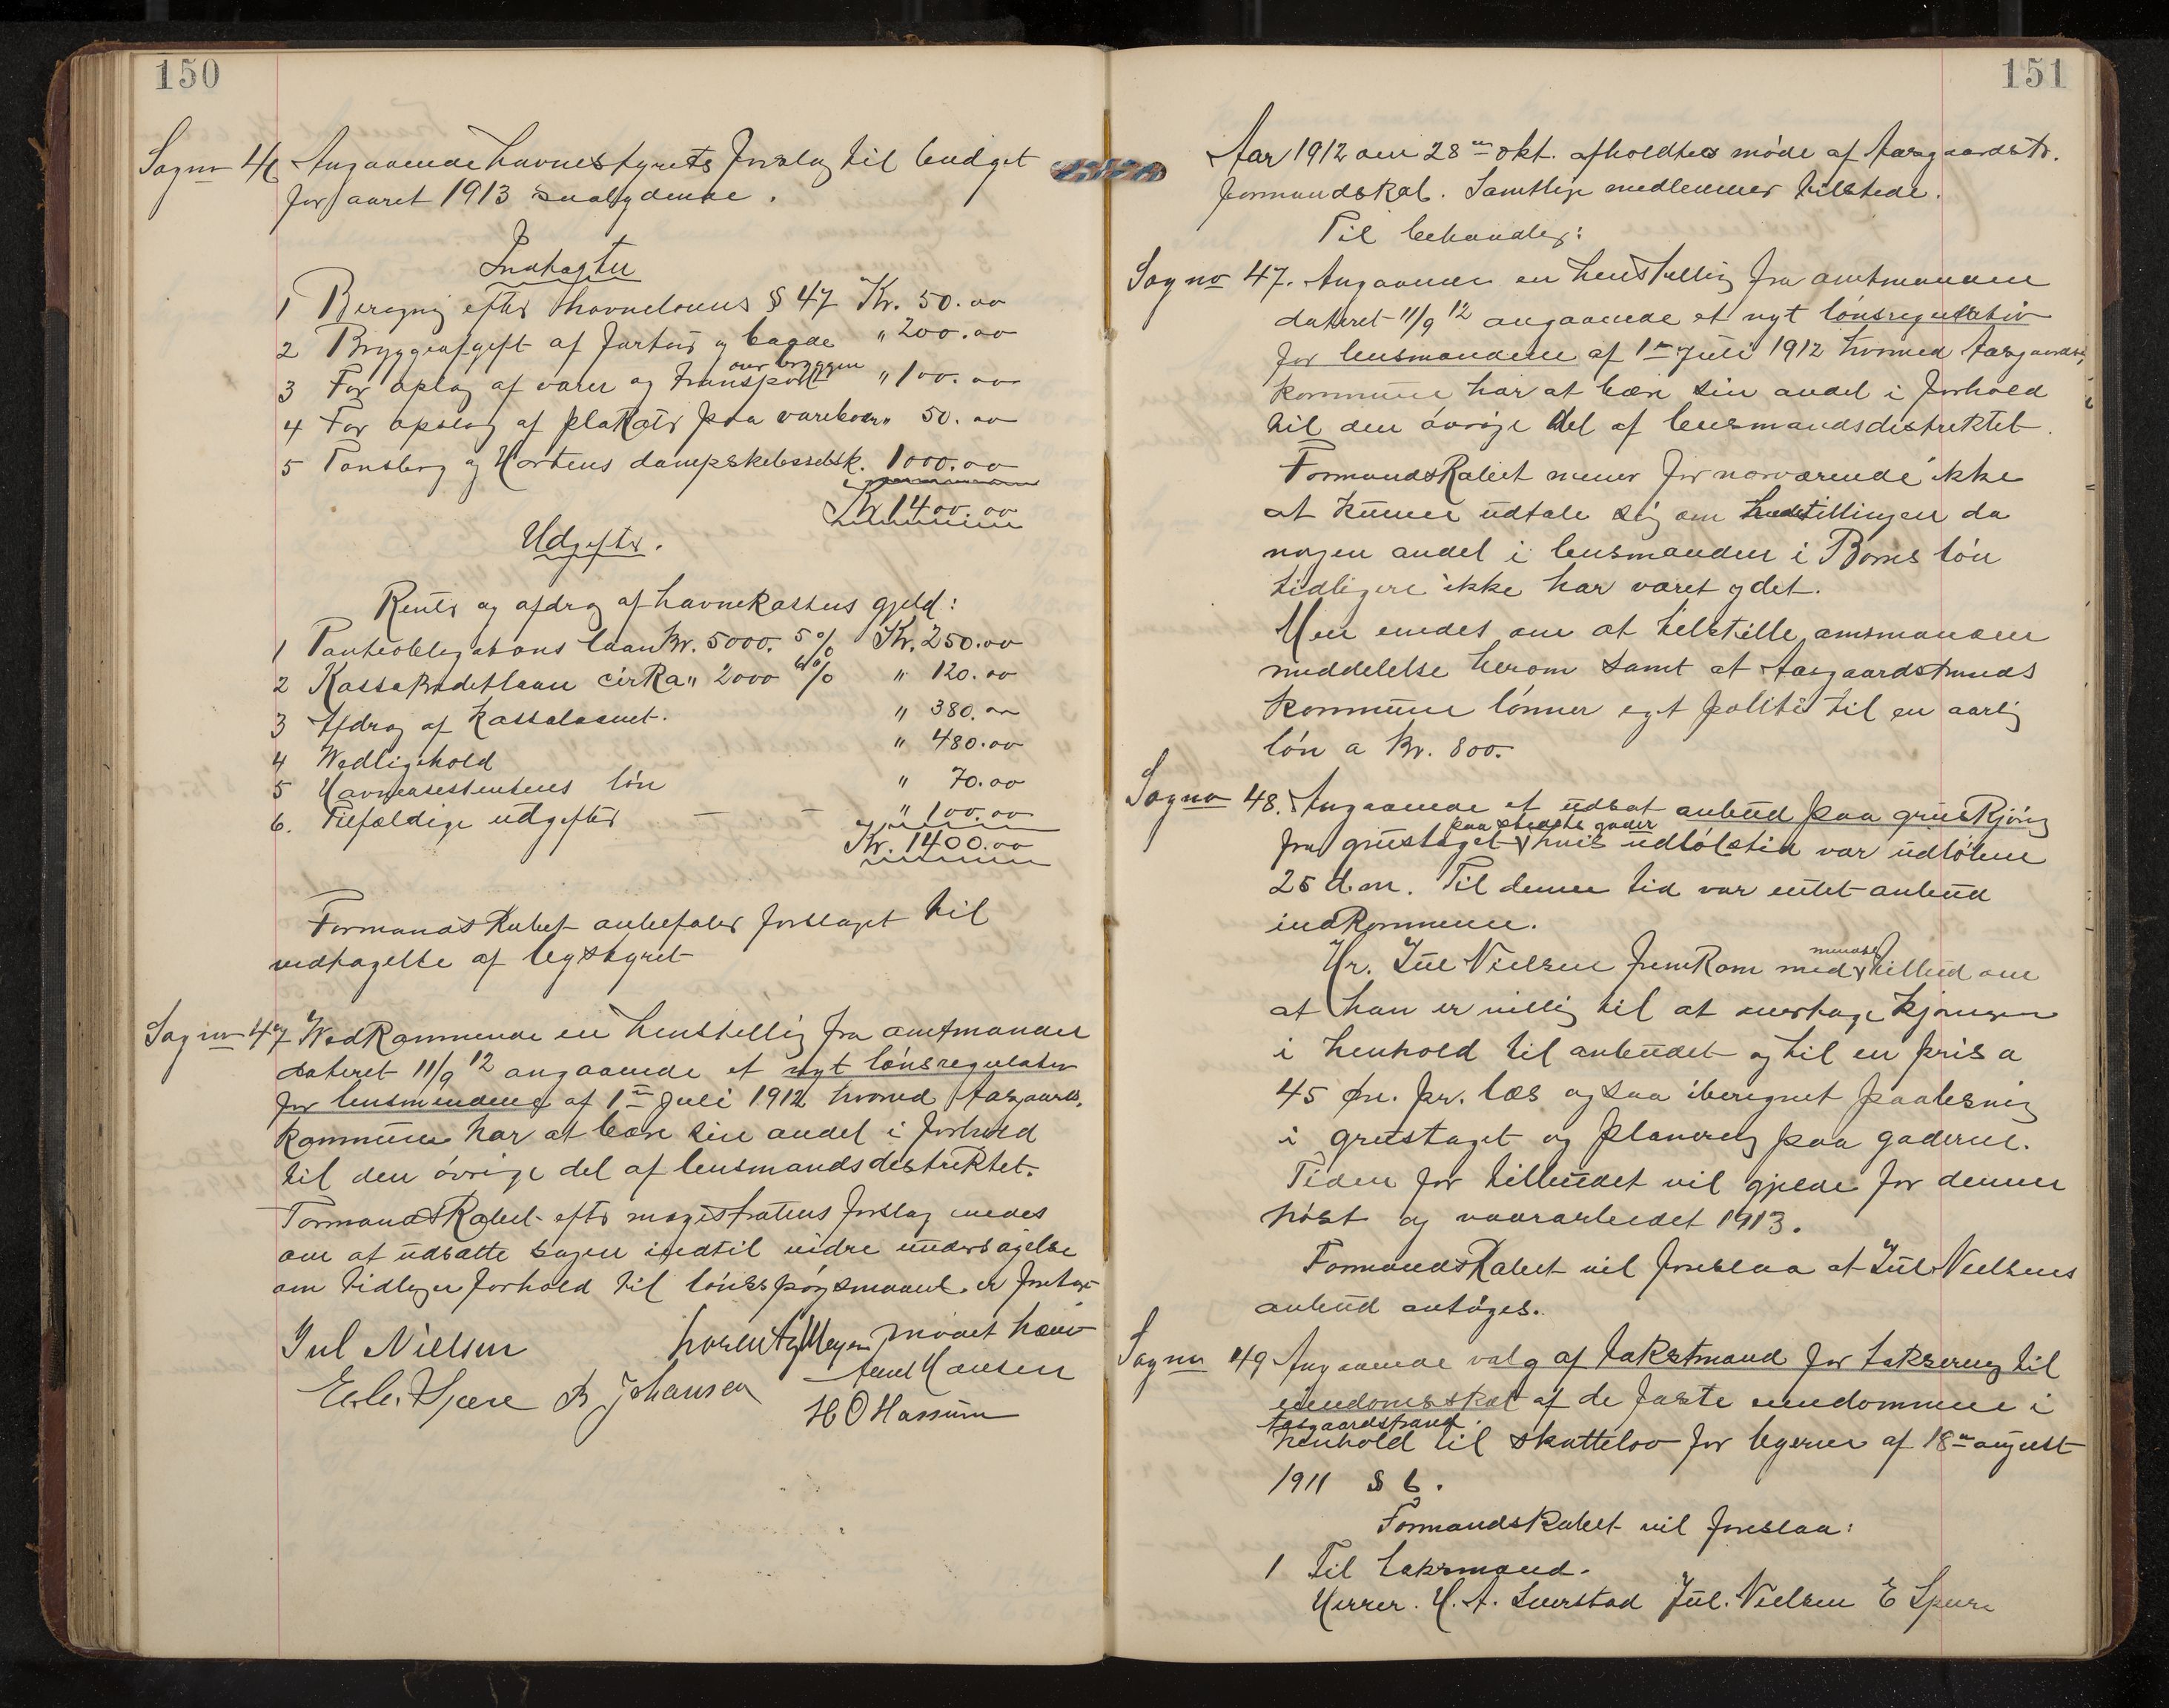 150
Sag no 46 Angaaende havnestyrets forslag til budget
for aaret 1913 saalydende.
Indtægter
1 Beregning efter Havnelovens § 47 Kr. 50.00
2 Bryggeafgift af fartøier og baade " 200.00
3 For oplag af varer og transport over bryggen " 100.00
4 For opslag af plakater paa vareboden " 50.00
5 Tønsberg og Hortens dampskibsselsk. 1000.00
Kr 1400.00
Udgifter.
Renter og afdrag af havnekassens gjeld:
1 Panteobligations laan Kr. 5000. 5% Kr. 250.00
2 Kassakreditlaan cirka " 2000 6% " 120.00
3 Afdrag af kassalaanet. " 380.00
4 Vedligehold " 480.00
5 Havneassistentens løn " 70.00
6. Tilfældige udgifter " 100.00
Kr. 1400.00
Formandskabet anbefaler forslaget til
vedtagelse af bystyret
Sag no 47 Vedkommende en henstilling fra amtmanden
dateret 11/9 12 angaaende et nyt lønsregulativ
for lensmændene af 1ste Juli 1912 hvorved Aasgaards.
kommune har at bære sin andel i forhold
til den øvrige del af lensmandsdistriktet.
Formandskabet efter magistratens forslag enedes
om at udsætte sagen indtil vidre undersøgelse
om tidligere forhold til lønsspørgsmaalet er foretaget
mødet hævet
Jul Nielsen Lorentz Meyer Axel Hansen
E. Spere B Johansen H O Hassum
151
Aar 1912 den 28de okt. afholdtes møde af Aasgaardstr.
formandskab. Samtlige medlemmer tilstede.
Til behandling:
Sag no 47. Angaaende en henstilling fra amtmanden
dateret 11/9 12 angaaende et nyt lønsregulativ
for lensmændene af 1ste Juli 1912 hvorved Aasgaards.
kommune har at bære sin andel i forhold
til den øvrige del af lensmandsdistriktet.
Formandskabet mener for nærværende ikke
at kunne udtale sig om henstillingen da
nogen andel i lensmanden i Borres løn
tidligere ikke har været ydet.
Men enedes om at tilstille amtmanden
meddelelse herom samt at Aasgaardstrands
kommune lønner eget politi til en aarlig
løn a Kr. 800.
Sag no 48. Angaaende et udsat anbud paa gruskjøring
fra grustaget paa stedets gader hvis udløbstid var udløben
25 d.m. Til denne tid var intet anbud
indkommen.
Hr. Jul Nielsen fremkom med mundtlig tilbud om
at han er villig til at overtage kjøringen
i henhold til anbudet og til en pris a
45 øre. pr. læs ogsaa iberegnet paalesning
i grustaget og planering paa gaderne.
Tiden for tilbudet vil gjelde for denne
høst og vaararbeidet 1913.
Formandskabet vil foreslaa at Jul Nielsens
anbud antages.
Sag no 49 Angaaende valg af takstmænd for taksering til
eiendomsskat af de faste eiendomme i
Aasgaardstrand.
henhold til skattelov for byerne af 18de august
1911 § 6.
Formandskabet vil foreslaa:
1 Til taksmænd.
Herrer. H. A. Sverstad Jul. Nielsen E Spere